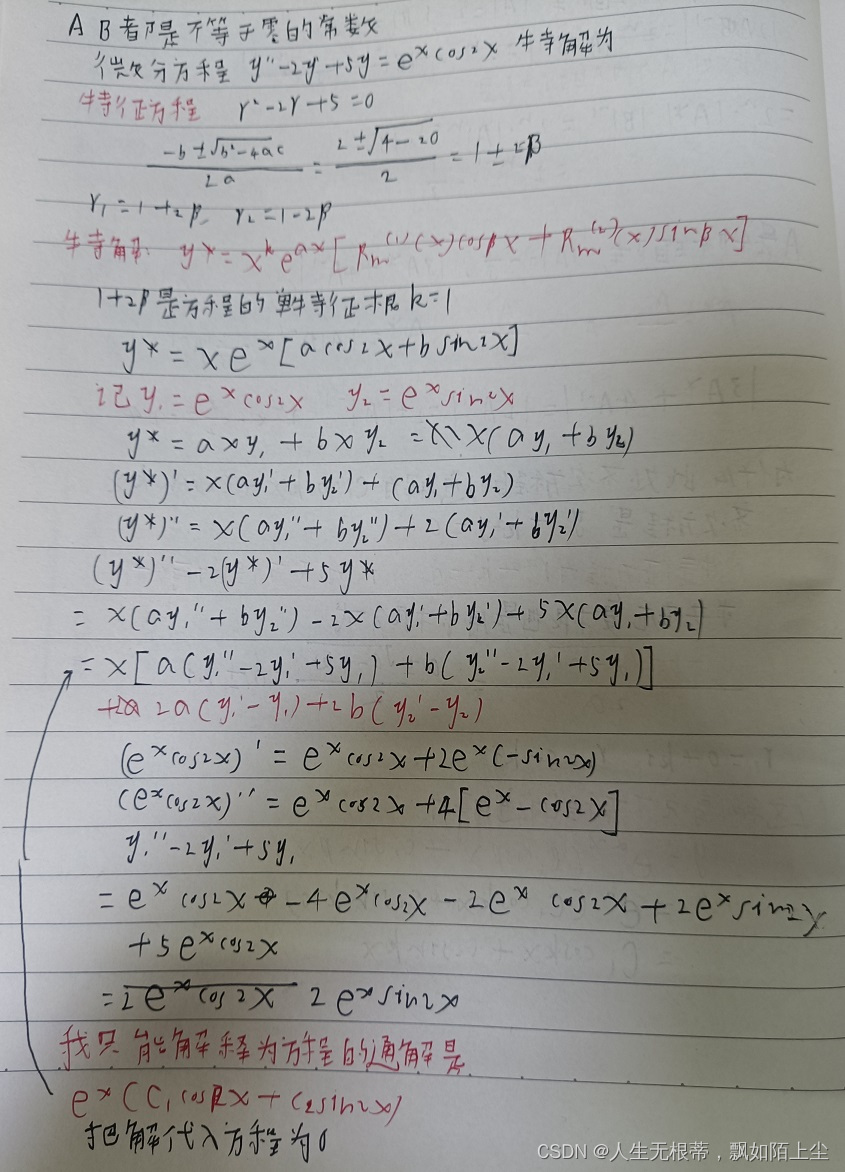 A B都是不等于零的常数
微分方程 y''-2y'+5y=e^x cos2x 特解为
特征方程 r²-2r+5=0
(-b±√(b²-4ac))/2a = (2±√(4-20))/2 = 1±2β
r₁=1+2β r₂=1-2β
特解: y*=x^k e^{ax}[R_m^{(1)}(x)cosβx+R_m^{(2)}(x)sinβx]
1+2β是方程的单特征根k=1
y*=xe^x[acos2x+bsin2x]
记y₁=e^x cos2x y₂=e^x sin2x
y*=axy₁+bxy₂=x(ay₁+by₂)
(y*)'=x(ay₁'+by₂')+(ay₁+by₂)
(y*)''=x(ay₁''+by₂'')+2(ay₁'+by₂')
(y*)''-2(y*)'+5y*
=x(ay₁''+by₂'')-2x(ay₁'+by₂')+5x(ay₁+by₂)
=x[a(y₁''-2y₁'+5y₁)+b(y₂''-2y₁'+5y₁)]
+2a(y₁'-y₁)+2b(y₂'-y₂)
(e^x cos2x)'=e^x cos2x+2e^x(-sin2x)
(e^x cos2x)''=e^x cos2x+4[e^x-cos2x]
y₁''-2y₁'+5y₁
=e^x cos2x-4e^x cos2x-2e^x cos2x+2e^x sin2x
+5e^x cos2x
=2e^x cos2x 2e^x sin2x
我只能解释为方程的通解是
e^x(C₁cos2x+C₂sin2x)
把解代入方程为0
CSDN @人生无根蒂，飘如陌上尘